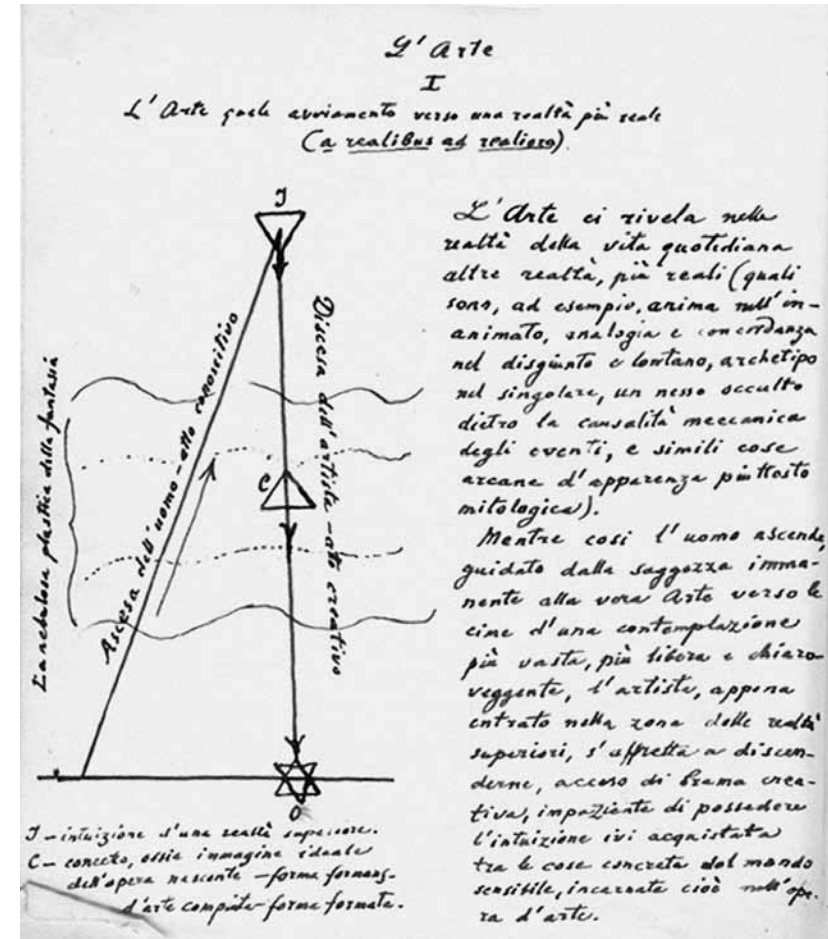 L'Arte
I
L'Arte quale avviamento verso una realtà più reale
(a realibus ad realiora).
I
Ascesa dell'uomo - atto conoscitivo
Discesa dell'artista - atto creativo
La nebulosa plastica della fantasia
C
O
I - intuizione d'una realtà superiore.
C - concetto, ossia immagine ideale
dell'opera nascente - forma formans.
d'arte compiuta - forma formata.
L'Arte ci rivela nella
realtà della vita quotidiana
altre realtà, più reali (quali
sono, ad esempio, anima nell'in-
animato, analogia e concordanza
nel disgiunto e lontano, archetipo
nel singolare, un nesso occulto
dietro la causalità meccanica
degli eventi, e simili cose
arcane d'apparenza piuttosto
mitologica).
Mentre così l'uomo ascende,
guidato dalla saggezza imma-
nente alla vera Arte verso le
cime d'una contemplazione
più vasta, più libera e chiaro-
veggente, l'artista, appena
entrato nella zona delle realtà
superiori, s'affretta a discen-
derne, acceso di brama crea-
tiva, impaziente di possedere
l'intuizione ivi acquistata
tra le cose concrete del mondo
sensibile, incarnata cioè nell'ope-
ra d'arte.